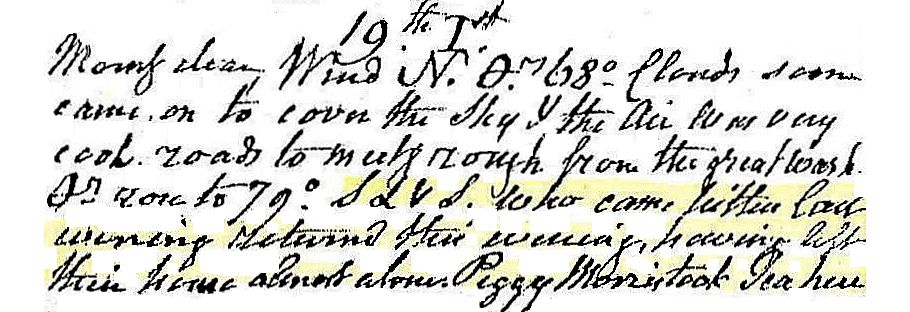 19th 1st
Morng clear Wind N. Or 68° Clouds soon
came on to cover the Sky & the Air was very
cool. roads to meetg rough from the great wash.
Or rose to 79° S & V S. who came hither last
evening returned this evening, having left
their home almost alone. Peggy Morris took Tea here